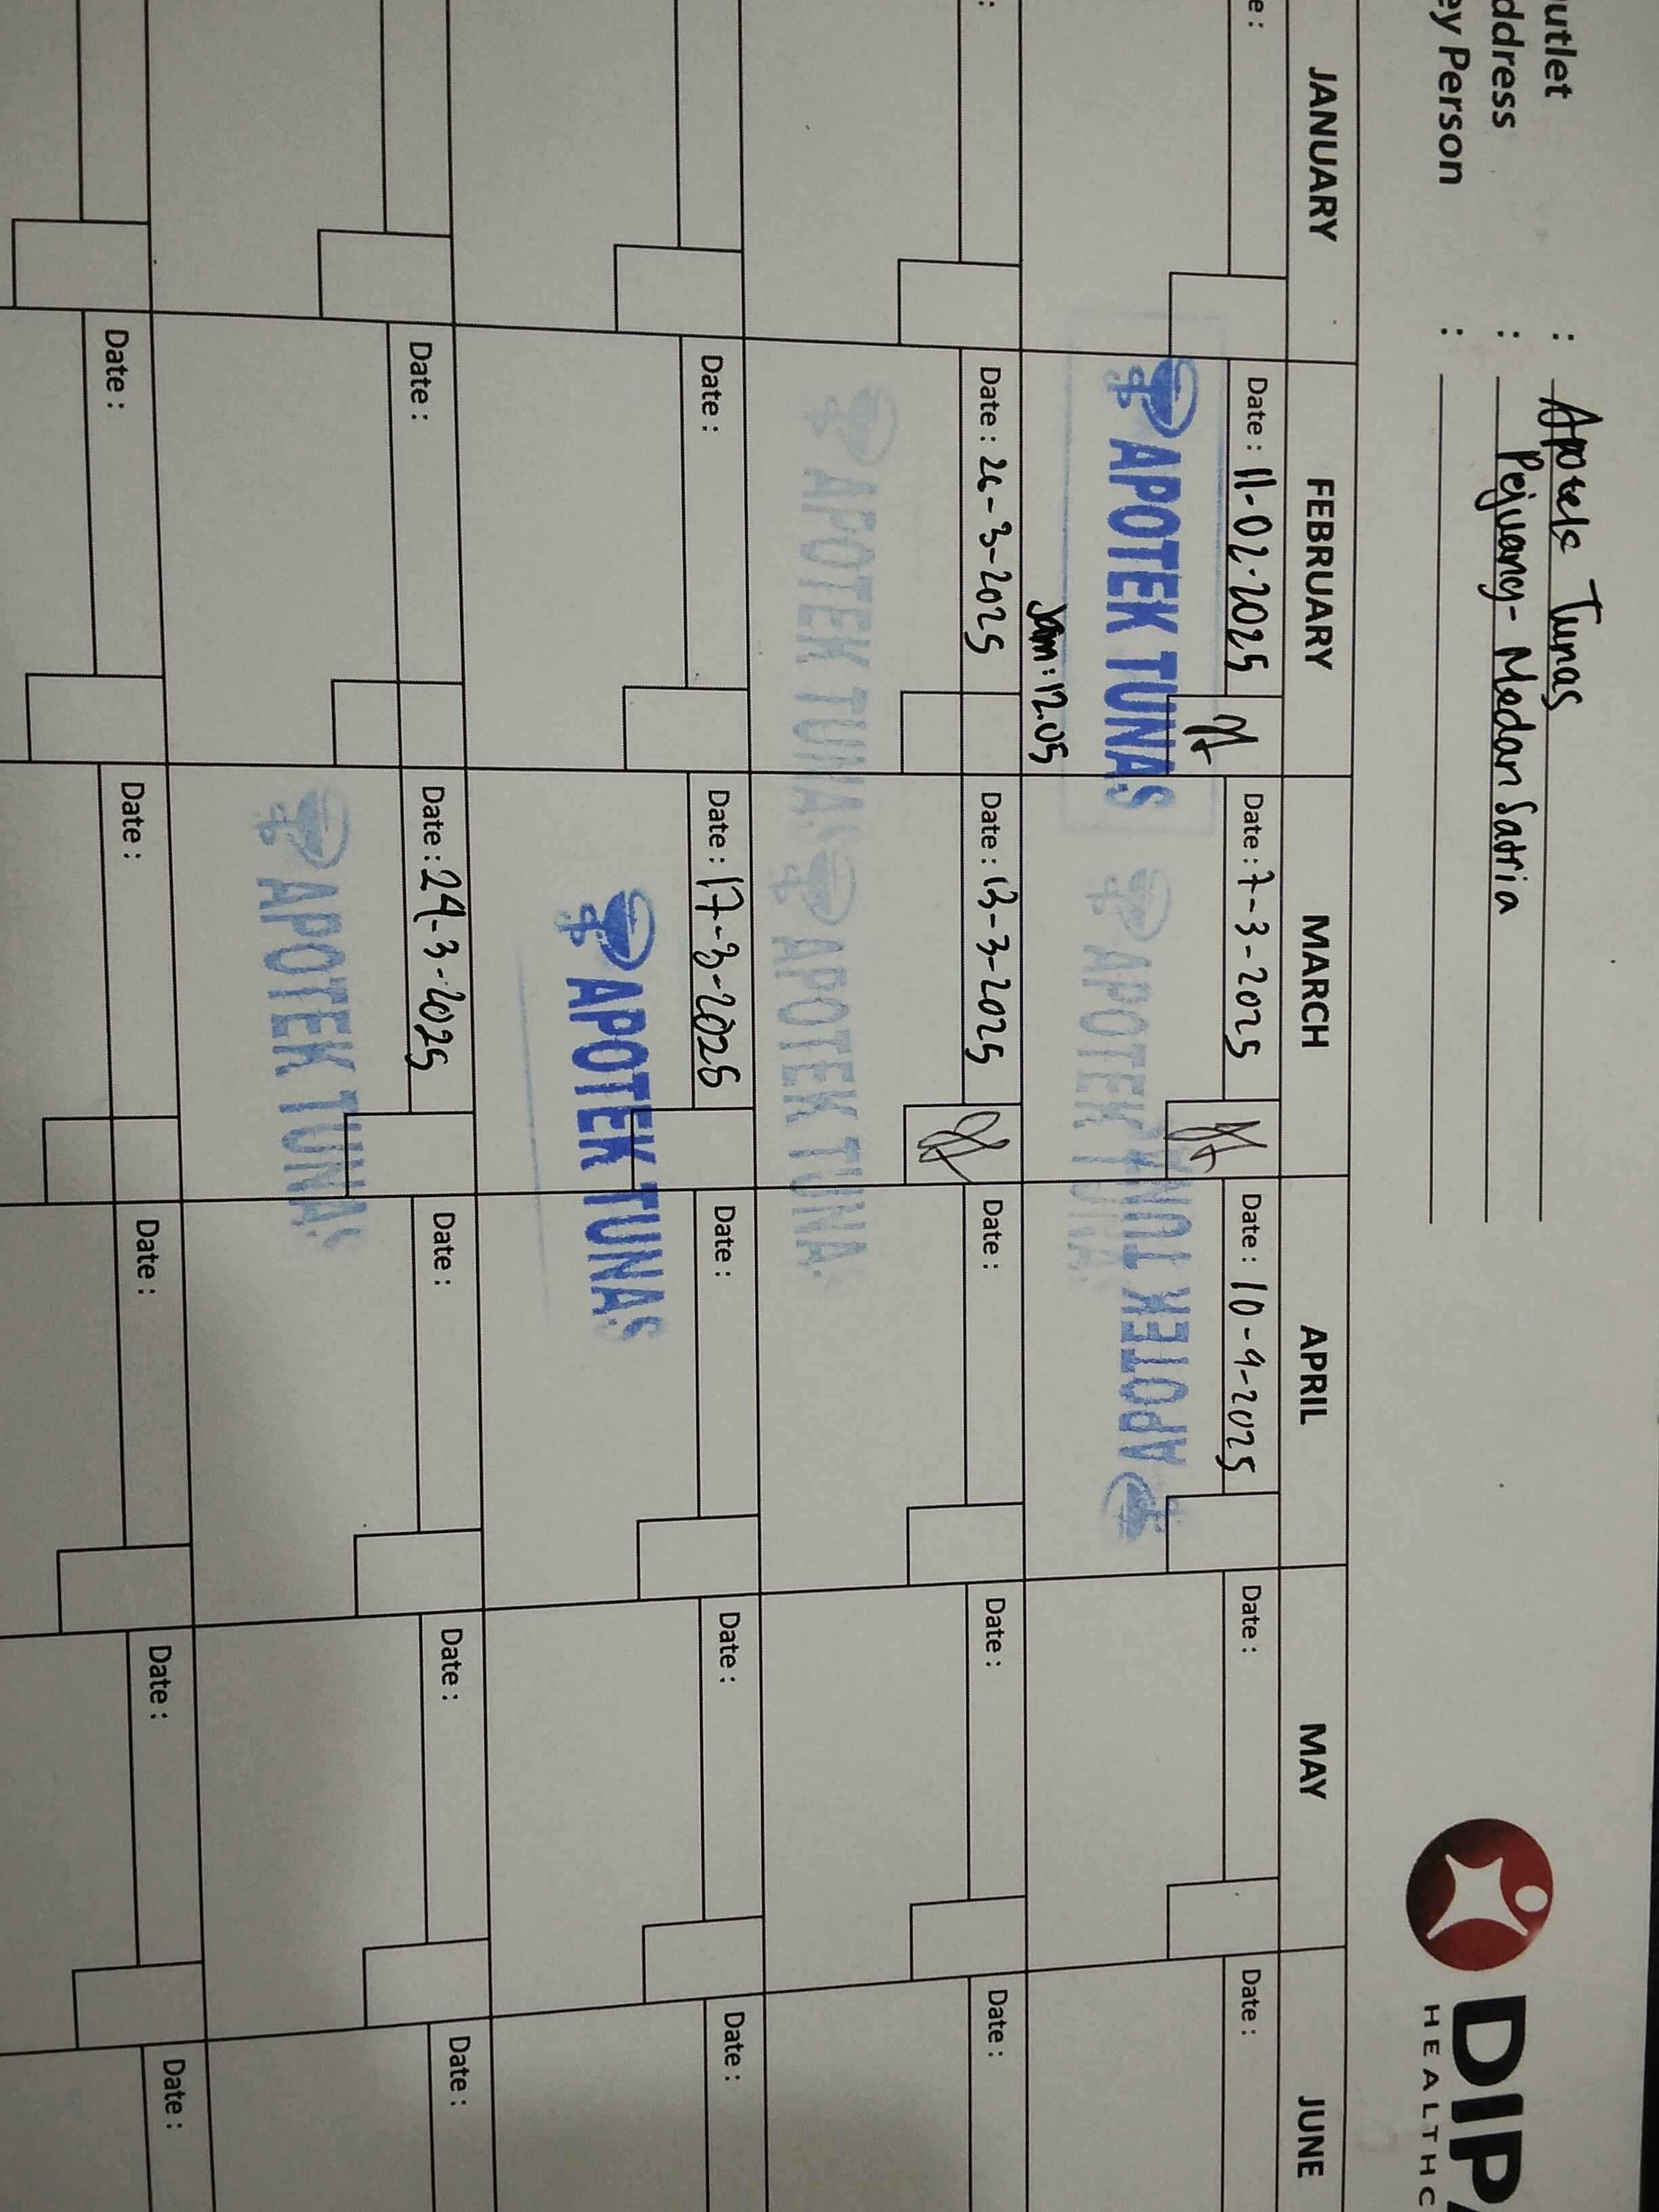 utlet : Apotek Tunas
ddress : Pejuang - Medan Satria
ey Person :
DIP
HEALTHC
JANUARY FEBRUARY MARCH APRIL MAY JUNE
e : Date : 11-02-2025 Date : 7-3-2025 Date : 10-4-2025 Date : Date :
APOTEK TUNAS APOTEK TUNAS APOTEK TUNAS
Jam : 12.05
: Date : 26-3-2025 Date : 13-3-2025 Date : Date : Date :
APOTEK TUNAS APOTEK TUNAS
Date : Date : 17-3-2025 Date : Date : Date :
APOTEK TUNAS
Date : Date : 24-3-2025 Date : Date : Date :
APOTEK TUNAS
Date : Date : Date : Date : Date :